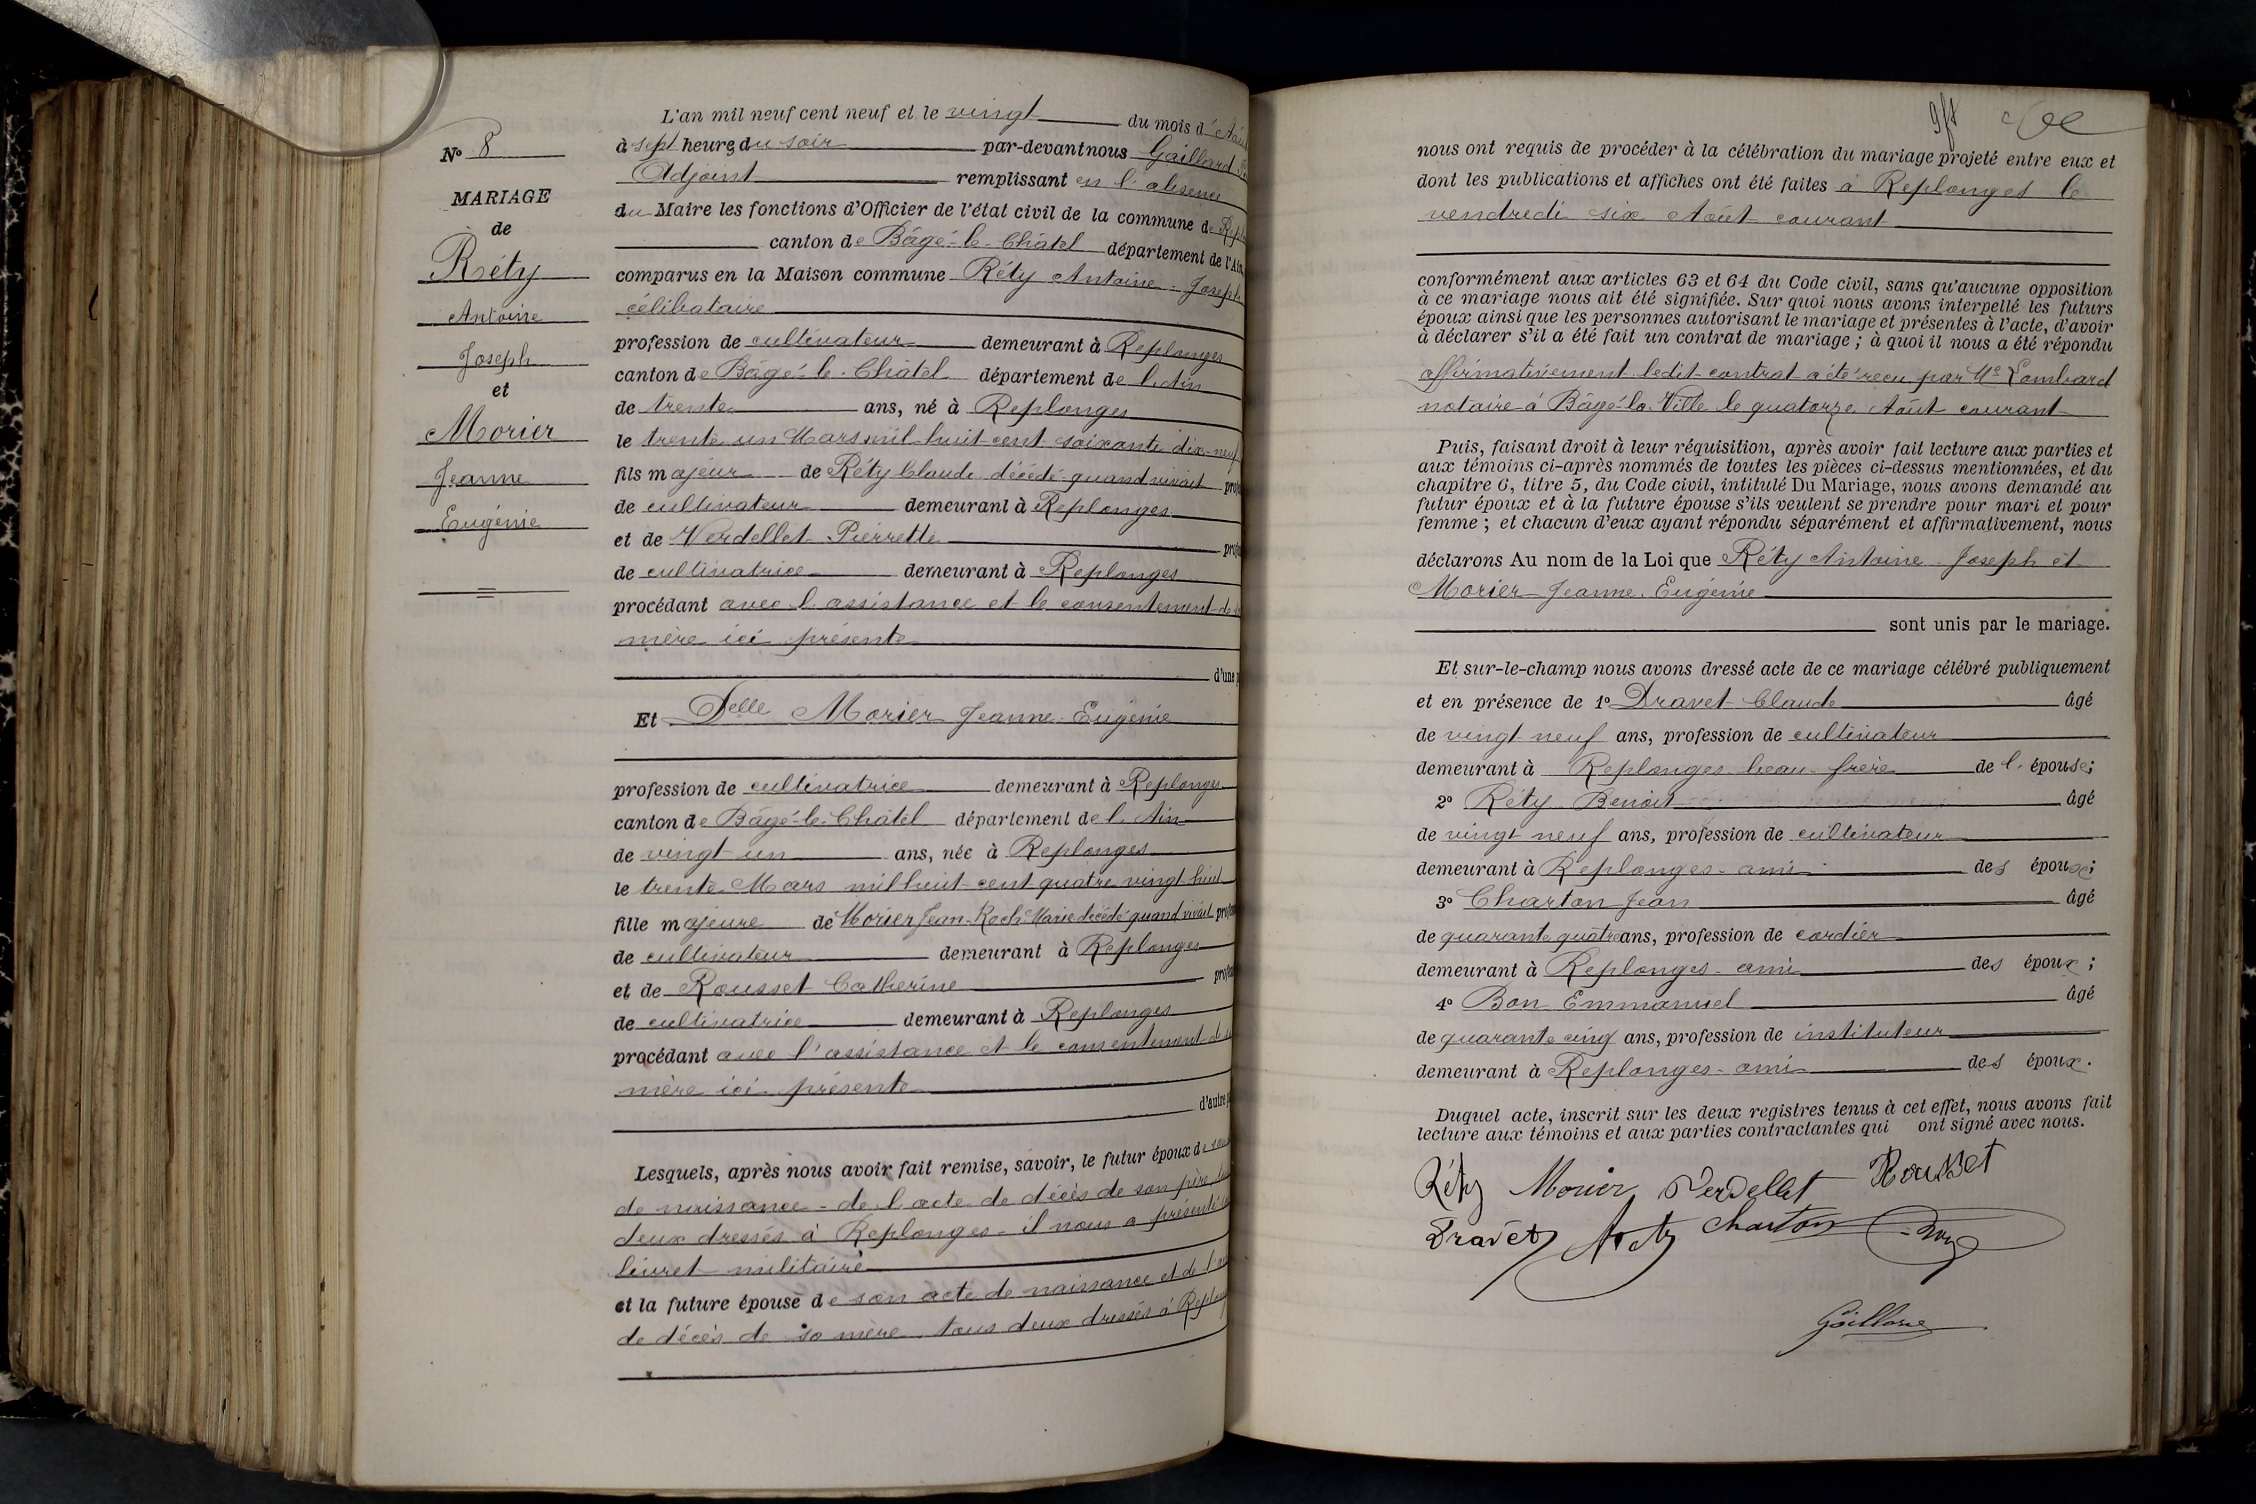 N° 8
MARIAGE
de
Réty
Antoine
Joseph
et
Morier
Jeanne
Eugénie
L'an mil neuf cent neuf et le vingt du mois d'Août
à sept heures du soir par-devant nous Gaillard
Adjoint remplissant en l'absence
du Maire les fonctions d'Officier de l'état civil de la commune de Repl
canton de Bâgé-le-Châtel département de l'Ain,
comparus en la Maison commune Réty Antoine-Joseph
célibataire
profession de cultivateur demeurant à Replonges
canton de Bâgé-le-Châtel département de l'Ain
de trente ans, né à Replonges
le trente un Mars mil huit cent soixante dix-neuf
fils majeur de Réty Claude décédé quand vivait prof
de cultivateur demeurant à Replonges
et de Verdellet Pierrette prof
de cultivatrice demeurant à Replonges
procédant avec l'assistance et le consentement de
mère ici présente
d'une
Et Delle Morier Jeanne-Eugénie
profession de cultivatrice demeurant à Replonges
canton de Bâgé-le-Châtel département de l'Ain
de vingt un ans, née à Replonges
le trente Mars mil huit cent quatre vingt huit
fille majeure de Morier Jean-Roch-Marie décédé quand vivait prof
de cultivateur demeurant à Replonges
et de Rousset Catherine prof
de cultivatrice demeurant à Replonges
procédant avec l'assistance et le consentement de
mère ici présente
d'autre
Lesquels, après nous avoir fait remise, savoir, le futur époux de son
de naissance - de l'acte de décès de son père
deux dressés à Replonges - il nous a présenté
livret militaire
et la future épouse de son acte de naissance et de l'
de décès de sa mère tous deux dressés à Replon
nous ont requis de procéder à la célébration du mariage projeté entre eux et
dont les publications et affiches ont été faites à Replonges le
vendredi six Août courant
conformément aux articles 63 et 64 du Code civil, sans qu'aucune opposition
à ce mariage nous ait été signifiée. Sur quoi nous avons interpellé les futurs
époux ainsi que les personnes autorisant le mariage et présentes à l'acte, d'avoir
à déclarer s'il a été fait un contrat de mariage ; à quoi il nous a été répondu
affirmativement ledit contrat a été reçu par Me Lombard
notaire à Bâgé-la-Ville le quatorze Août courant
Puis, faisant droit à leur réquisition, après avoir fait lecture aux parties et
aux témoins ci-après nommés de toutes les pièces ci-dessus mentionnées, et du
chapitre 6, titre 5, du Code civil, intitulé Du Mariage, nous avons demandé au
futur époux et à la future épouse s'ils veulent se prendre pour mari et pour
femme ; et chacun d'eux ayant répondu séparément et affirmativement, nous
déclarons Au nom de la Loi que Réty Antoine-Joseph et
Morier Jeanne-Eugénie
sont unis par le mariage.
Et sur-le-champ nous avons dressé acte de ce mariage célébré publiquement
et en présence de 1° Dravet Claude âgé
de vingt neuf ans, profession de cultivateur
demeurant à Replonges beau-frère de l'épouse;
2° Réty Benoît âgé
de vingt neuf ans, profession de cultivateur
demeurant à Replonges - ami des époux;
3° Charton Jean âgé
de quarante quatre ans, profession de cordier
demeurant à Replonges - ami des époux ;
4° Bon Emmanuel âgé
de quarante cinq ans, profession de instituteur
demeurant à Replonges - ami des époux.
Duquel acte, inscrit sur les deux registres tenus à cet effet, nous avons fait
lecture aux témoins et aux parties contractantes qui ont signé avec nous.
Réty Morier Verdellet Rousset
Dravet Réty Charton Bon
Gaillard